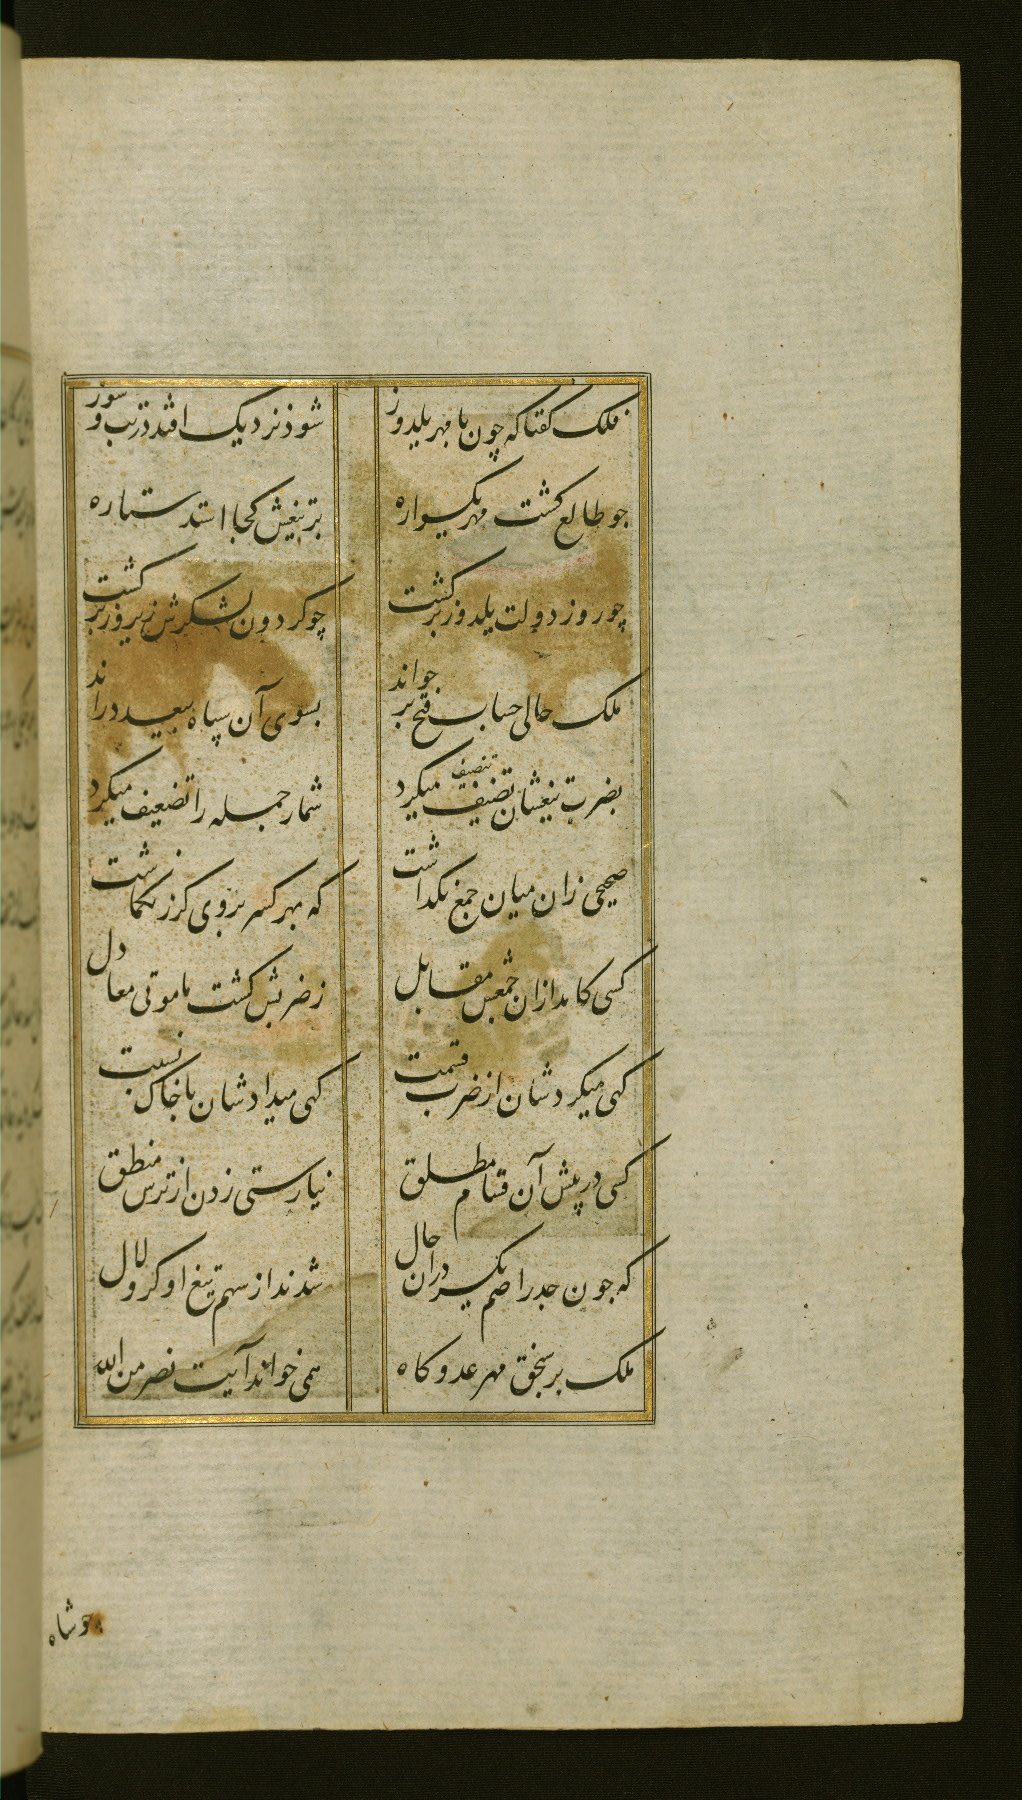 فلک کفتا که چون با مهر یلدوز
شود نزدیک افتد در تب و سوز
جو طالع کشت مهر یکسواره
بر تیغش کجا استد ستاره
چو روز دولت یلدوز برکشت
چو کردون لشکرش زیر و زبر کشت
ملک حالی حساب فتح بر جواند
بسوی آن سپاه بیعد در اند
بضرب تیغشان تضیف میکرد
تنصیف
شمار جمله را تضعیف میکرد
صحیحی زان میان جمع نکداشت
که بهر کسر بروی کرز نکماشت
کسی کامد ازان جمعش مقابل
ز ضربش کشت با موتی معادل
کهی میکردشان از ضرب قسمت
کهی میدادشان با خاک نسبت
کسی در پیش آن قسام مطلق
نیارستی زدن از ترس منطق
که جون جدر اصم یکسر دران حال
شدند از سهم تیغ او کر و لال
ملک بر سنجق مهر عدو کاه
همی خواند آیت نصر من الله
جو شاه